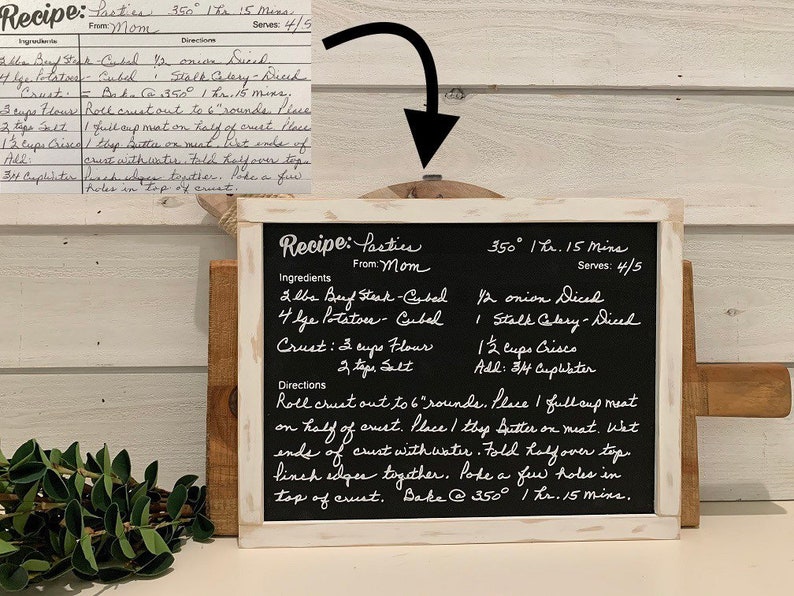 Recipe: Pasties 350° 1 hr. 15 Mins
From: Mom Serves: 4/5
Ingredients Directions
2 lbs Beef Steak - Cubed 1/2 onion Diced.
4 lge Potatoes - Cubed 1 Stalk Celery - Diced
Crust. = Bake @ 350° 1 hr. 15 mins.
3 cups Flour Roll crust out to 6" rounds. Place
2 tsps. Salt 1 full cup meat on half of crust. Place
1 1/2 cups Crisco 1 tbsp Butter on meat. Wet ends of
Add: crust with water. Fold half over top.
3/4 Cup Water Pinch edges together. Poke a few
holes in top of crust.
Recipe: Pasties 350° 1 hr. 15 Mins
From: Mom Serves: 4/5
Ingredients
2 lbs Beef Steak - Cubed 1/2 onion Diced
4 lge Potatoes - Cubed 1 Stalk Celery - Diced
Crust: 3 cups Flour 1 1/2 cups Crisco
2 tsps. Salt Add: 3/4 Cup Water
Directions
Roll crust out to 6" rounds. Place 1 full cup meat
on half of crust. Place 1 tbsp Butter on meat. Wet
ends of crust with water. Fold half over top.
Pinch edges together. Poke a few holes in
top of crust. Bake @ 350° 1 hr. 15 Mins.